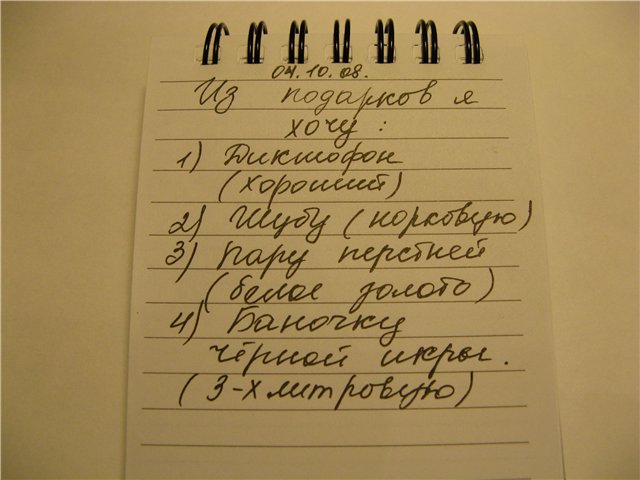 04.10.08.
Из подарков я
хочу:
1) Диктофон
(хороший)
2) Шубу (норковую)
3) Пару перстней
(белое золото)
4) Баночку
чёрной икры.
(3-х литровую)